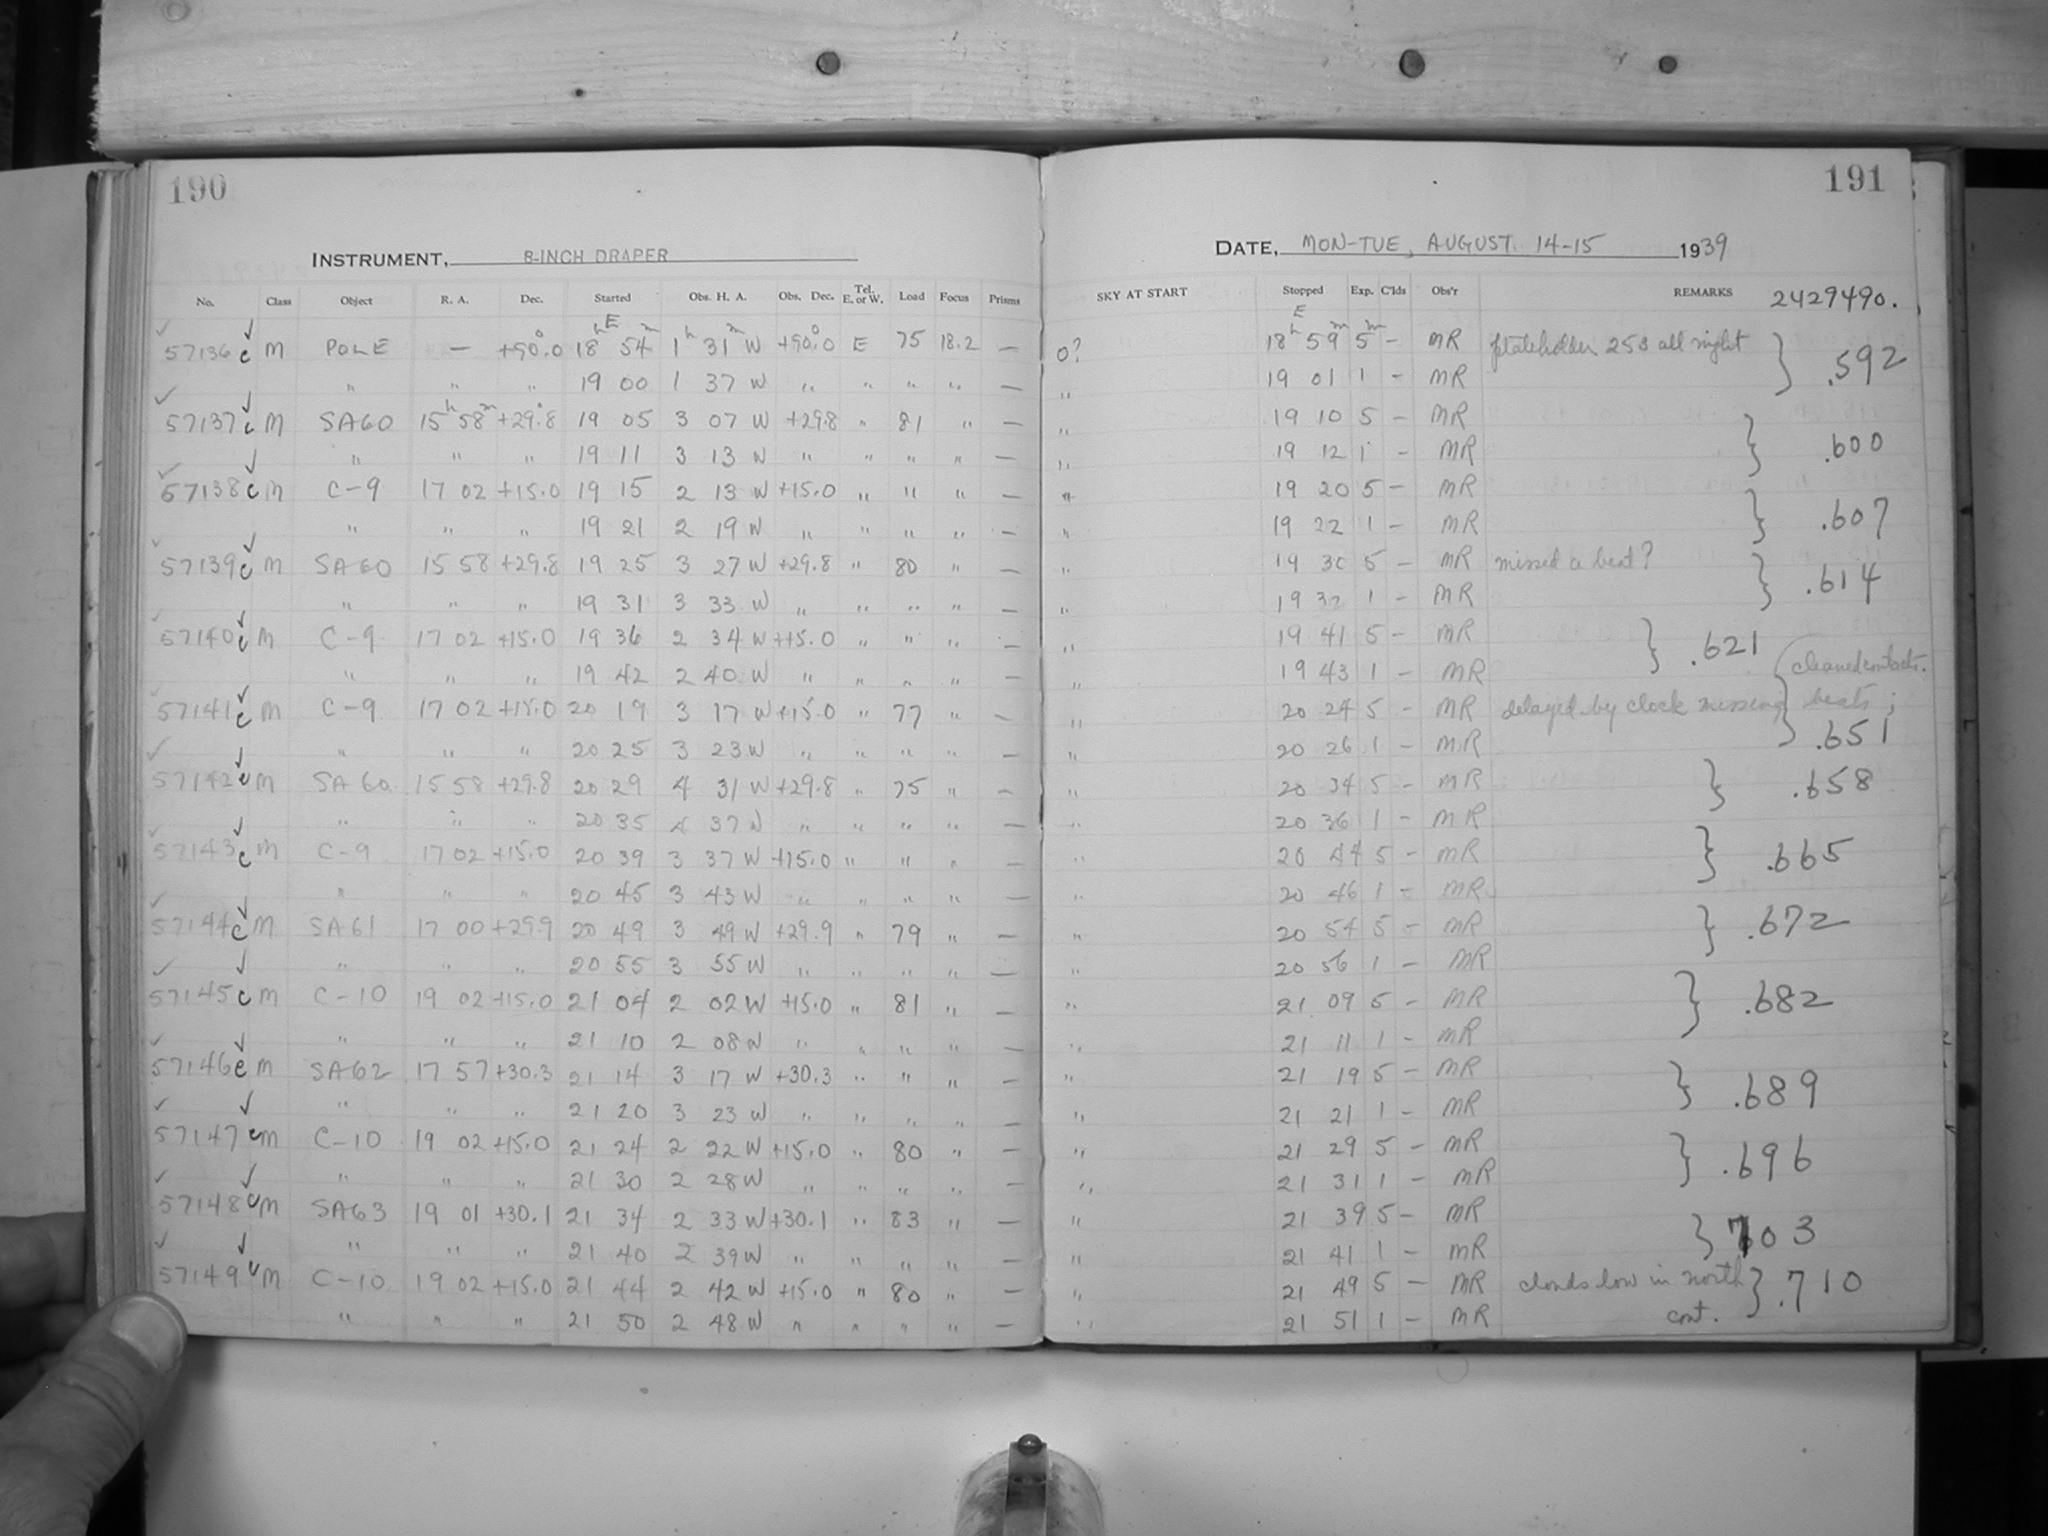 190
INSTRUMENT, 8-INCH DRAPER
No. Class Object R. A. Dec. Started Obs. H. A. Obs. Dec. Tel. E. or W. Load Focus Prisms
57136 c M POLE — +90.0° 18h E 54m 1h 31m W +90.0° E 75 18.2 —
" " " 19 00 1 37 W " " " " —
57137 c M SA60 15h 58m +29.8° 19 05 3 07 W +29.8 " 81 " —
" " " 19 11 3 13 W " " " " —
57138 c M C-9 17 02 +15.0 19 15 2 13 W +15.0 " " " —
" " " 19 21 2 19 W " " " " —
57139 c M SA60 15 58 +29.8 19 25 3 27 W +29.8 " 80 " —
" " " 19 31 3 33 W " " " " —
57140 c M C-9 17 02 +15.0 19 36 2 34 W +15.0 " " " —
" " " 19 42 2 40 W " " " " —
57141 c M C-9 17 02 +15.0 20 19 3 17 W +15.0 " 77 " —
" " " 20 25 3 23 W " " " " —
57142 c M SA60 15 58 +29.8 20 29 4 31 W +29.8 " 75 " —
" " " 20 35 4 37 W " " " " —
57143 c M C-9 17 02 +15.0 20 39 3 37 W +15.0 " " " —
" " " 20 45 3 43 W " " " " —
57144 c M SA61 17 00 +29.9 20 49 3 49 W +29.9 " 79 " —
" " " 20 55 3 55 W " " " " —
57145 c M C-10 19 02 +15.0 21 04 2 02 W +15.0 " 81 " —
" " " 21 10 2 08 W " " " " —
57146 c M SA62 17 57 +30.3 21 14 3 17 W +30.3 " " " —
" " " 21 20 3 23 W " " " " —
57147 c M C-10 19 02 +15.0 21 24 2 22 W +15.0 " 80 " —
" " " 21 30 2 28 W " " " " —
57148 c M SA63 19 01 +30.1 21 34 2 33 W +30.1 " 83 " —
" " " 21 40 2 39 W " " " " —
57149 c M C-10 19 02 +15.0 21 44 2 42 W +15.0 " 80 " —
" " " 21 50 2 48 W " " " " —
191
DATE, MON-TUE, AUGUST 14-15 1939
SKY AT START Stopped Exp. C'lds Obs'r REMARKS 2429490.
0? 18h E 59m 5m — MR plateholder 253 all night
" 19 01 1 — MR } .592
" 19 10 5 — MR
" 19 12 1 — MR } .600
" 19 20 5 — MR
" 19 22 1 — MR } .607
" 19 30 5 — MR missed a beat?
" 19 32 1 — MR } .614
" 19 41 5 — MR
" 19 43 1 — MR } .621 (cleaned contacts.
" 20 24 5 — MR delayed by clock missing beats;
" 20 26 1 — MR } .651
" 20 34 5 — MR
" 20 36 1 — MR } .658
" 20 44 5 — MR
" 20 46 1 — MR } .665
" 20 54 5 — MR
" 20 56 1 — MR } .672
" 21 09 5 — MR
" 21 11 1 — MR } .682
" 21 19 5 — MR
" 21 21 1 — MR } .689
" 21 29 5 — MR
" 21 31 1 — MR } .696
" 21 39 5 — MR
" 21 41 1 — MR } 703
" 21 49 5 — MR clouds low in north
" 21 51 1 — MR cont. } .710